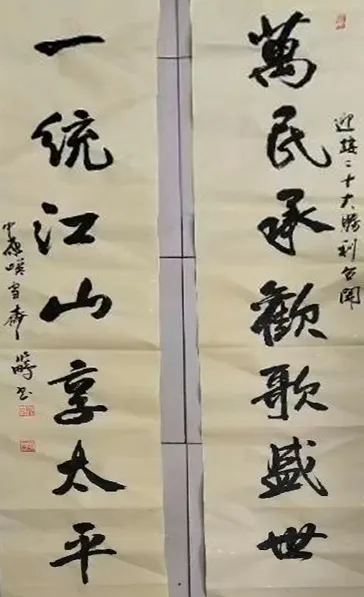 迎接二十大勝利召開
萬民承歡歌盛世
一統江山享太平